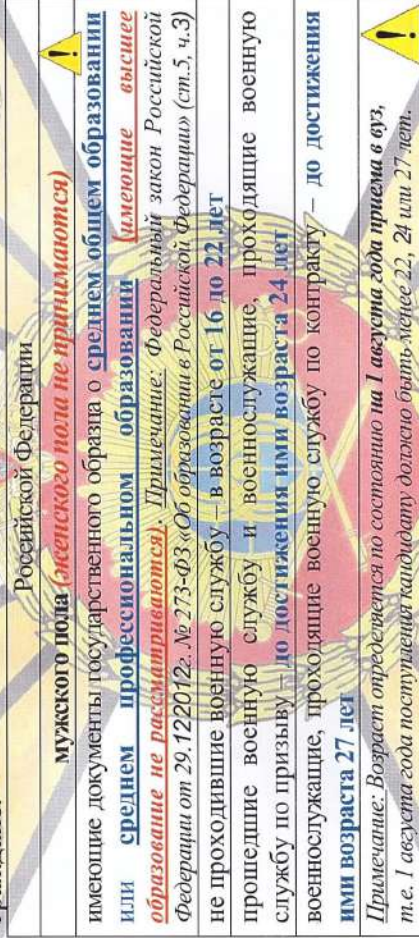 Российской Федерации
мужского пола (женского пола не принимаются)
имеющие документы государственного образца о среднем общем образовании
или среднем профессиональном образовании (имеющие высшее
образование не рассматриваются). Примечание: Федеральный закон Российской
Федерации от 29.122012г. № 273-ФЗ «Об образовании в Российской Федерации» (ст.5, ч.3)
не проходившие военную службу – в возрасте от 16 до 22 лет
прошедшие военную службу и военнослужащие, проходящие военную
службу по призыву – до достижения ими возраста 24 лет
военнослужащие, проходящие военную службу по контракту – до достижения
ими возраста 27 лет
Примечание: Возраст определяется по состоянию на 1 августа года приема в вуз,
т.е. 1 августа года поступления кандидату должно быть менее 22, 24 или 27 лет.